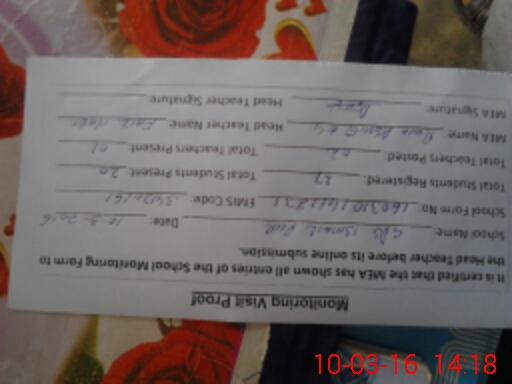 Monitoring Visit Proof
It is certified that the MEA has shown all entries of the School Monitoring Form to
the Head Teacher before its online submission.
School Name: GPS Ismail Date: 10-3-2016
School Form No: EMIS Code:
Total Students Registered: 27 Total Students Present: 20
Total Teachers Posted: 02 Total Teachers Present: 01
MEA Name: Head Teacher Name:
MEA Signature: Head Teacher Signature:
10-03-16 14:18